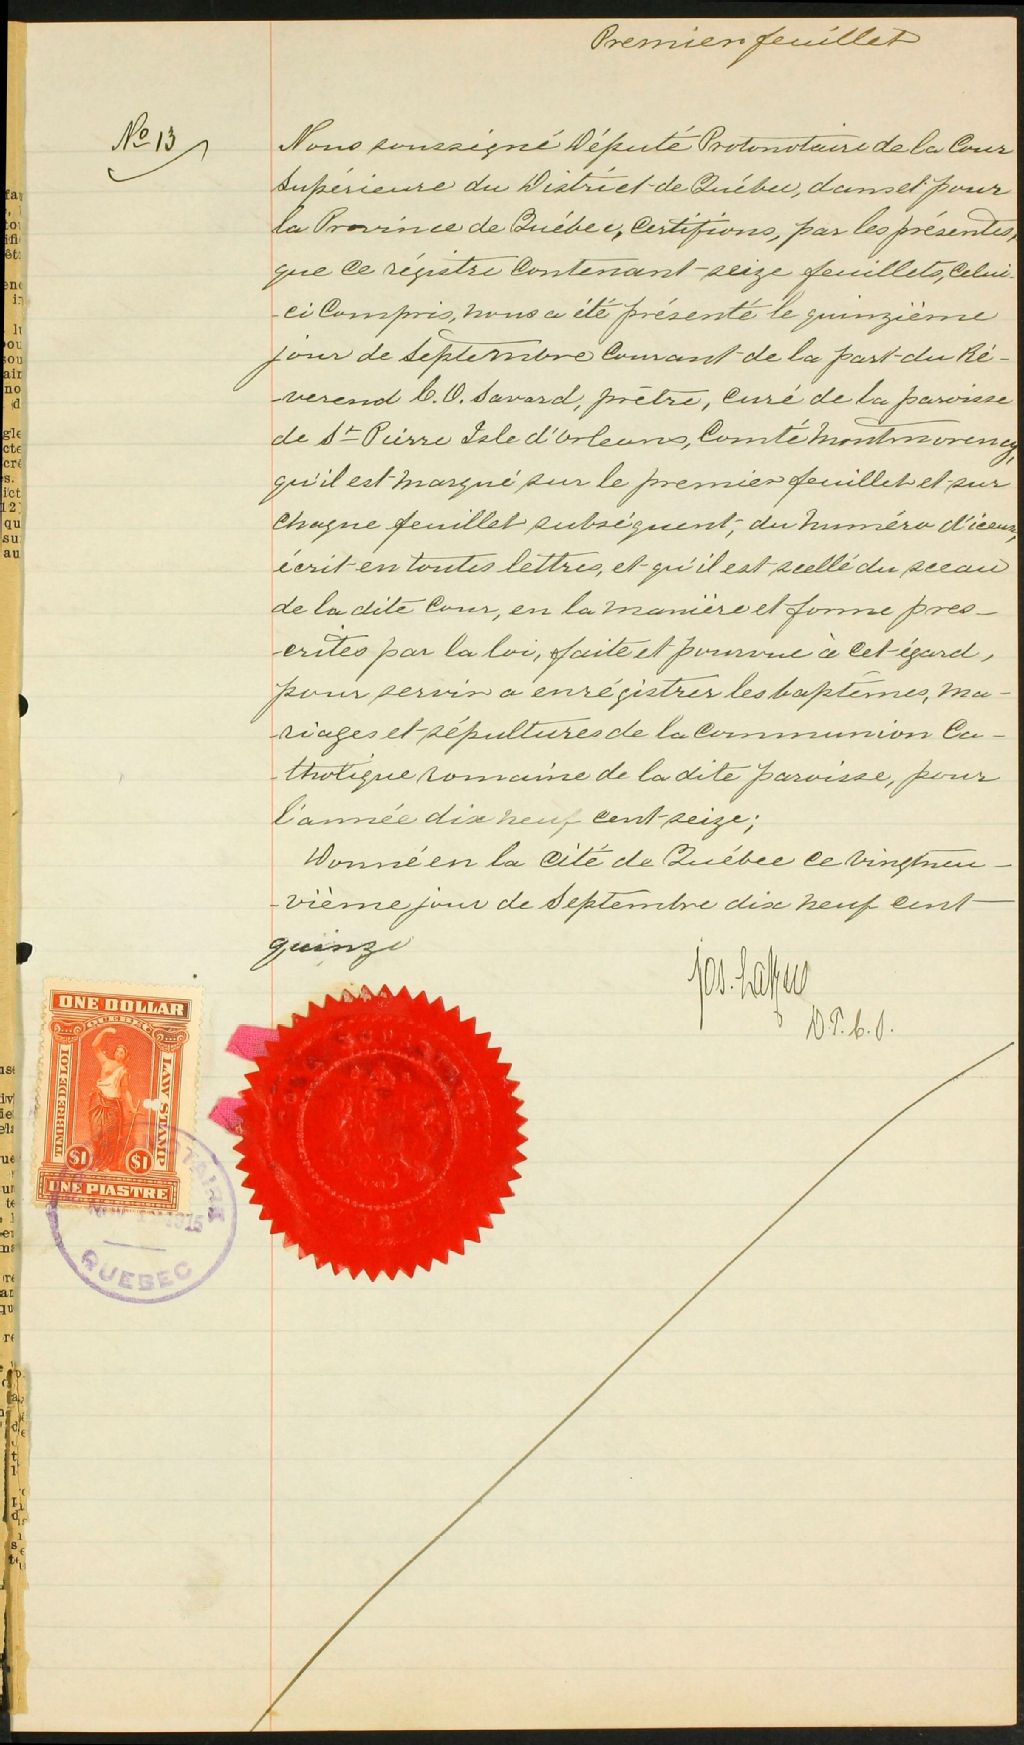 Premier feuillet
No 13
Nous soussigné Député Protonotaire de la Cour
Supérieure du District de Québec, dans et pour
la Province de Québec, certifions, par les présentes,
que ce régistre contenant seize feuillets, celui-
-ci compris, nous a été présenté le quinzième
jour de Septembre courant de la part du Ré-
-verend C. O. Savard, prêtre, curé de la paroisse
de St Pierre Isle d'Orleans, Comté Montmorency,
qu'il est marqué sur le premier feuillet et sur
chaque feuillet subséquent, du numéro d'iceux,
écrit en toutes lettres, et qu'il est scellé du sceau
de la dite Cour, en la manière et forme pres-
-crites par la loi, faite et pourvue à cet égard,
pour servir a enrégistrer les baptêmes, ma-
-riages et sépultures de la Communion Ca-
-tholique romaine de la dite paroisse, pour
l'année dix neuf cent seize;
Donné en la Cité de Québec ce vingtneu-
-vième jour de Septembre dix neuf cent
quinze
Jos.
D. P. C. S.
ONE DOLLAR
QUEBEC
TIMBRE DE LOI
LAW STAMP
$1 $1
UNE PIASTRE
1915
QUEBEC